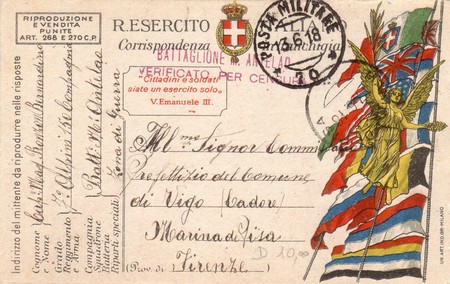 RIPRODUZIONE
E VENDITA
PUNITE
ART. 268 E 270 C.P.
R. ESERCITO ITALIANO
Corrispondenza in franchigia
POSTA MILITARE
13.6.18
70
BATTAGLIONE M. ANTELAO
VERIFICATO PER CENSURA
Cittadini e soldati
siate un esercito solo.
V. Emanuele III.
Indirizzo del mittente da riprodurre nelle risposte
Cognome
Nome
Grado
Reggimento
e Arma
Compagnia
Squadrone
Batteria
Riparti speciali
7º Alpini
Compagnia
Batt. M. Antelao
Zona di Guerra
Ill.mo Signor Commissario
Prefettizio del Comune
di Vigo (Cadore)
Marina di Pisa
(Prov. di Firenze)
D 10,00
UN. ART. IND. GR. MILANO